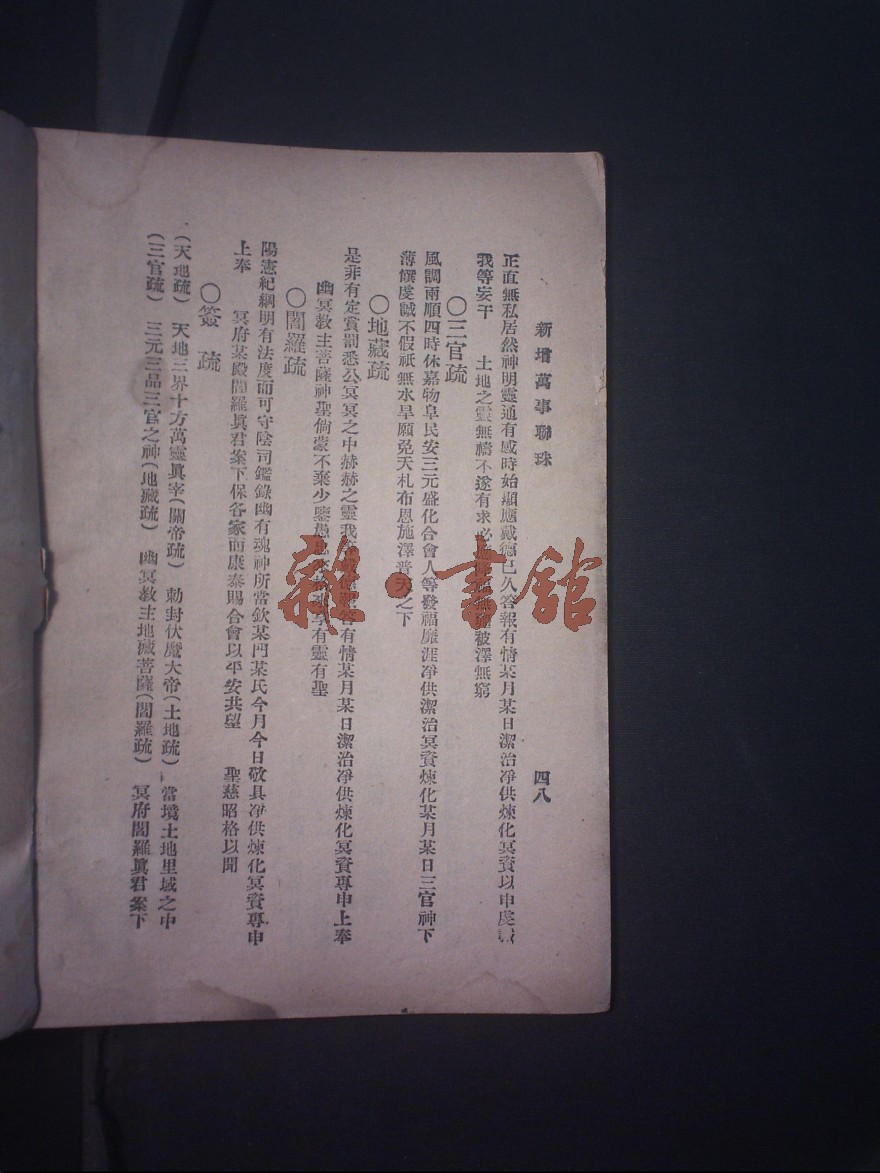 新增萬事聯珠 四八
正直無私居然神明靈通有感時始顯應戴德已久答報有情某月某日潔治凈供煉化冥資以申虔誠
我等妄干 土地之靈無禱不遂有求必 被澤無窮
〇三官疏
風調雨順四時休嘉物阜民安三元盛化合會人等發福無涯凈供潔治冥資煉化某月某日三官神下
薄饌虔誠不假祇無水旱願免天札布恩施澤普天之下
〇地藏疏
是非有定賞罰悉公冥冥之中赫赫之靈我 答有情某月某日潔治凈供煉化冥資專申上奉
幽冥教主菩薩神聖倘蒙不棄少鑒愚 享有靈有聖
〇閻羅疏
陽憲紀綱明有法度而可守陰司鑑錄幽有魂神所當欽某門某氏今月今日敬具凈供煉化冥資專申
上奉 冥府某殿閻羅眞君案下保各家而康泰賜合會以平安共望 聖慈昭格以聞
〇簽疏
(天地疏) 天地三界十方萬靈眞宰(關帝疏) 勅封伏魔大帝(土地疏) 當境土地里域之中
(三官疏) 三元三品三官之神(地藏疏) 幽冥教主地藏菩薩(閻羅疏) 冥府閻羅眞君案下
雜·書館